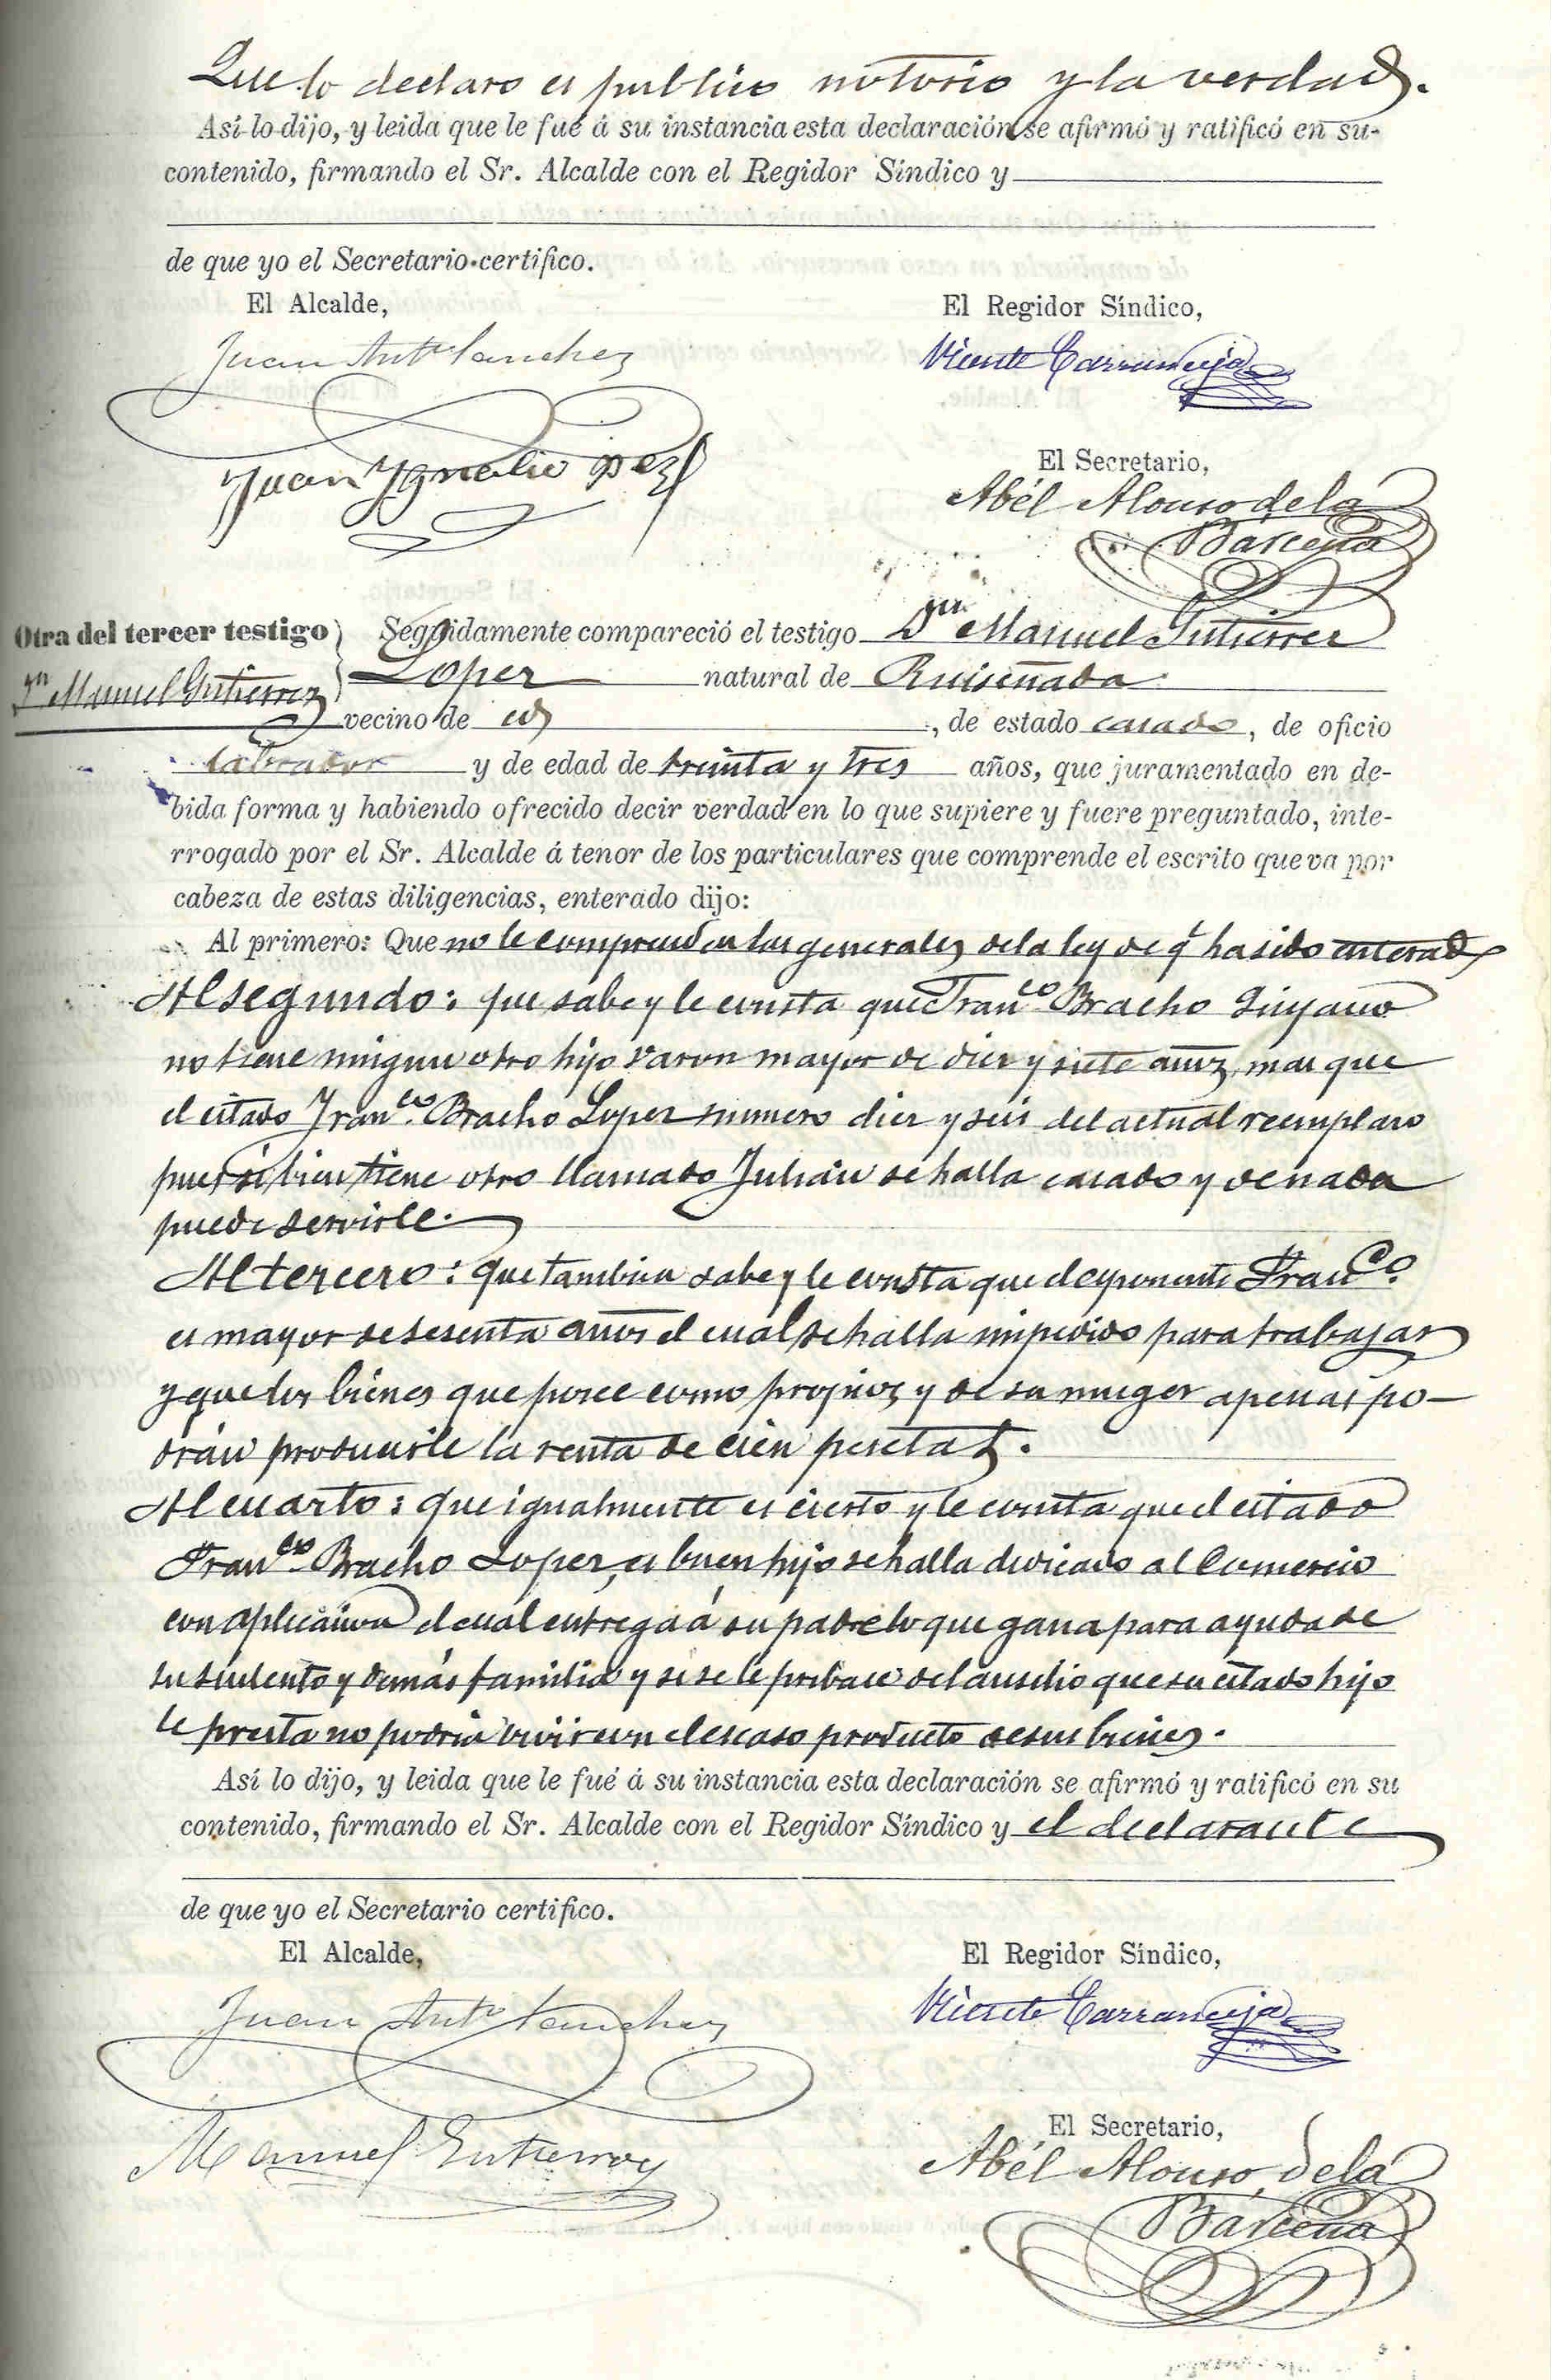 Que lo declaro es publico notorio y la verdad.
Así lo dijo, y leida que le fué á su instancia esta declaración se afirmó y ratificó en su
contenido, firmando el Sr. Alcalde con el Regidor Síndico y
de que yo el Secretario certifico.
El Alcalde,
El Regidor Síndico,
Juan Antº Sanchez
Vicente Carranceja
Juan Ygnacio
El Secretario,
Abél Alonso de la
Bárcena
Otra del tercer testigo
Dn Manuel Gutierrez
Seguidamente compareció el testigo Dn Manuel Gutierrez
Lopez natural de Ruiseñada
vecino de id, de estado casado, de oficio
labrador y de edad de treinta y tres años, que juramentado en de-
bida forma y habiendo ofrecido decir verdad en lo que supiere y fuere preguntado, inte-
rrogado por el Sr. Alcalde á tenor de los particulares que comprende el escrito que va por
cabeza de estas diligencias, enterado dijo:
Al primero: Que no le comprenden las generales de la ley de q.e ha sido enterado
Al segundo: que sabe y le consta que Franco Bracho
no tiene ningun otro hijo varon mayor de diez y siete años, mas que
el citado Franco. Bracho Lopez numero diez y seis del actual reemplazo
pues si bien tiene otro llamado Julián se halla casado y de nada
puede servirle.
Al tercero: que tambien sabe y le consta que el exponente Franco.
es mayor de sesenta años el cual se halla impedido para trabajar
y que los bienes que posee como propios y de su muger apenas po-
drán producirle la renta de cien pesetas.
Al cuarto: que igualmente es cierto y le consta que el citado
Franco Bracho Lopez, es buen hijo se halla dedicado al Comercio
con aplicacion el cual entrega á su padre lo que gana para ayuda de
su sustento y demás familia y si se le privase del ausilio que su citado hijo
le presta no podria vivir con el escaso producto de sus bienes.
Así lo dijo, y leida que le fué á su instancia esta declaración se afirmó y ratificó en su
contenido, firmando el Sr. Alcalde con el Regidor Síndico y el declarante
de que yo el Secretario certifico.
El Alcalde,
El Regidor Síndico,
Juan Antº Sanchez
Vicente Carranceja
El Secretario,
Manuel Gutierrez
Abél Alonso de la
Bárcena